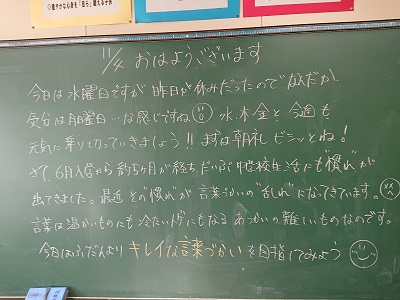 11/4 おはようございます
今日は水曜日ですが昨日が休みだったのでなんだか
気分は月曜日…な感じですね 水・木・金と今週も
元気に乗り切っていきましょう!! まずは朝礼ビシッとね!
さて、6月入官から約5ヶ月が経ち、だいぶ学校生活にも"慣れ"が
出てきました。最近その"慣れ"が言葉づかいの"乱れ"になってきています。
言葉は温かいものにも冷たいトゲにもなるあつかいの難しいものなのです。
今日はふだんよりキレイな言葉づかいを目指してみよう